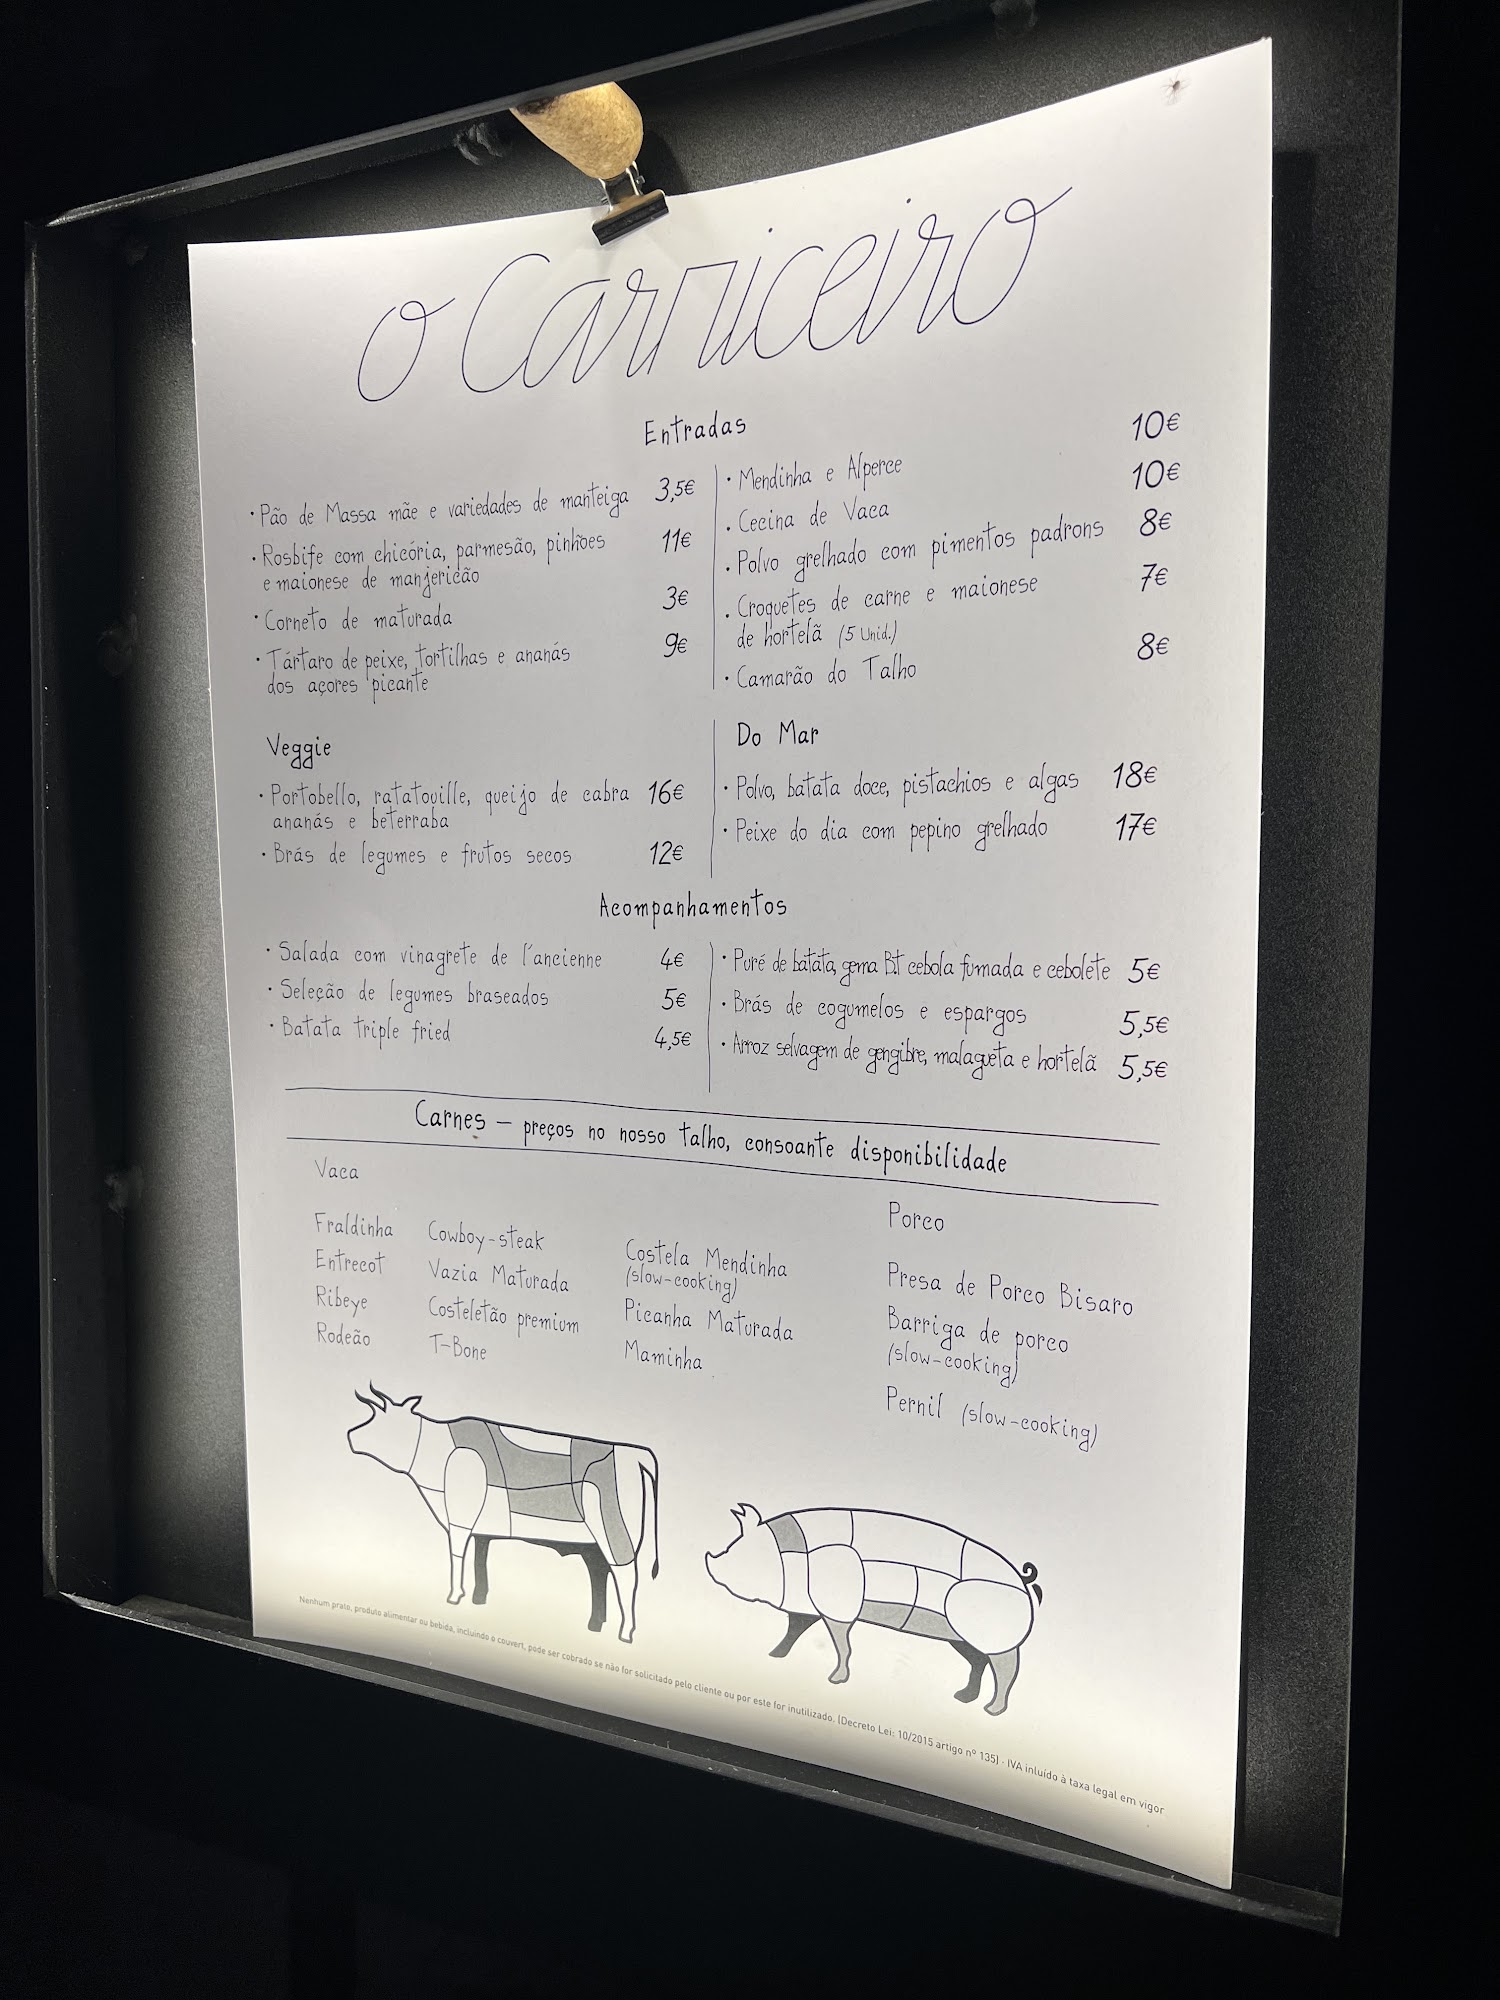 o Carniceiro
Entradas
· Pão de Massa mãe e variedades de manteiga 3,5€
· Rosbife com chicória, parmesão, pinhões 11€
e maionese de manjericão
· Corneto de maturada 3€
· Tártaro de peixe, tortilhas e ananás 9€
dos açores picante
· Mendinha e Alperce 10€
· Cecina de Vaca 10€
· Polvo grelhado com pimentos padrons 8€
· Croquetes de carne e maionese 7€
de hortelã (5 Unid.)
· Camarão do Talho 8€
Veggie
· Portobello, ratatouille, queijo de cabra 16€
ananás e beterraba
· Brás de legumes e frutos secos 12€
Do Mar
· Polvo, batata doce, pistachios e algas 18€
· Peixe do dia com pepino grelhado 17€
Acompanhamentos
· Salada com vinagrete de l'ancienne 4€
· Seleção de legumes braseados 5€
· Batata triple fried 4,5€
· Puré de batata, gema BT cebola fumada e cebolete 5€
· Brás de cogumelos e espargos 5,5€
· Arroz selvagem de gengibre, malagueta e hortelã 5,5€
Carnes – preços no nosso talho, consoante disponibilidade
Vaca
Fraldinha
Entrecot
Ribeye
Rodeão
Cowboy-steak
Vazia Maturada
Costeletão premium
T-Bone
Costela Mendinha
(slow-cooking)
Picanha Maturada
Maminha
Porco
Presa de Porco Bisaro
Barriga de porco
(slow-cooking)
Pernil (slow-cooking)
Nenhum prato, produto alimentar ou bebida, incluindo o couvert, pode ser cobrado se não for solicitado pelo cliente ou por este for inutilizado. (Decreto Lei: 10/2015 artigo nº 135) - IVA inluído à taxa legal em vigor